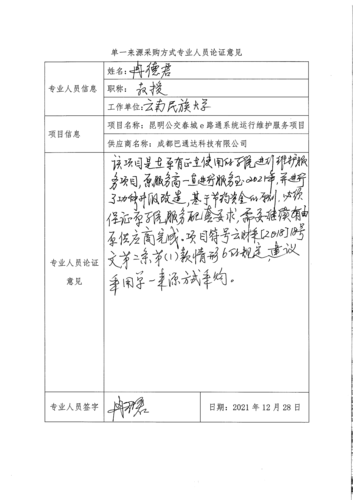 单一来源采购方式专业人员论证意见
专业人员信息
姓名：冉德君
职称：教授
工作单位：云南民族大学
项目信息
项目名称：昆明公交春城e路通系统运行维护服务项目
供应商名称：成都巴通达科技有限公司
专业人员论证意见
该项目是在原有正在使用的系统进行维护服
务项目，原服务商一直进行服务至2021年，并进行
了功能升级改造，基于节约资金的原则，必须
保证原系统服务配套要求，需要继续由
原供应商完成。项目符号云财采[2018]1号
文第二条第(1)款情形6的规定，建议
采用单一来源方式采购。
专业人员签字
日期：2021年12月28日